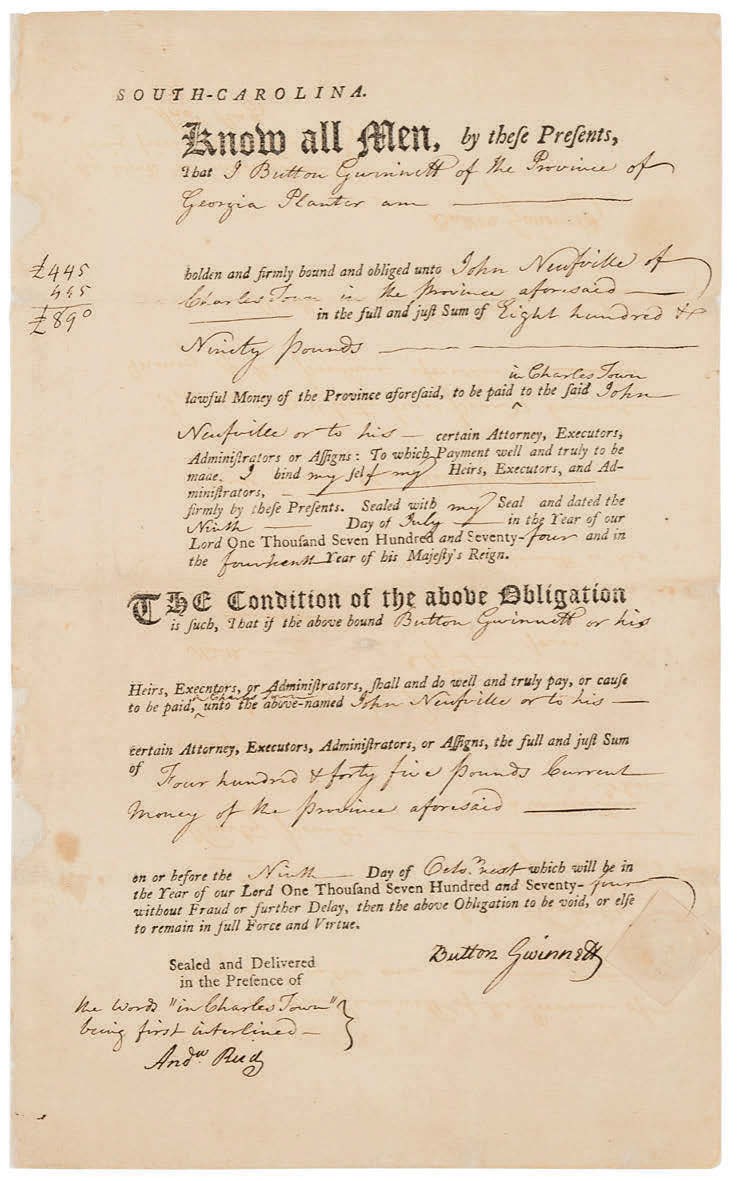 SOUTH-CAROLINA.
Know all Men, by theſe Preſents,
That I Button Gwinnett of the Province of
Georgia Planter am
£445
445
£890
holden and firmly bound and obliged unto John Neufville of
Charles Town in the Province aforesaid
in the full and juſt Sum of Eight hundred &
Ninety Pounds
in Charles Town
lawful Money of the Province aforeſaid, to be paid ^ to the ſaid John
Neufville or to his certain Attorney, Executors,
Adminiſtrators or Aſſigns: To which Payment well and truly to be
made. I bind my ſelf my Heirs, Executors, and Ad-
miniſtrators,
firmly by theſe Preſents. Sealed with my Seal and dated the
Ninth Day of July in the Year of our
Lord One Thouſand Seven Hundred and Seventy-four and in
the fourteenth Year of his Majeſty's Reign.
THE Condition of the above Obligation
is ſuch, That if the above bound Button Gwinnett or his
Heirs, Executors, or Adminiſtrators, ſhall and do well and truly pay, or cause
in Charles Town
to be paid, ^ unto the above-named John Neufville or to his
certain Attorney, Executors, Adminiſtrators, or Aſſigns, the full and juſt Sum
of Four hundred & forty five Pounds Current
Money of the Province aforesaid
on or before the Ninth Day of Octo.r next which will be in
the Year of our Lord One Thouſand Seven Hundred and Seventy-four
without Fraud or further Delay, then the above Obligation to be void, or elſe
to remain in full Force and Virtue.
Button Gwinnett
Sealed and Delivered
in the Preſence of
the Words "in Charles Town"
being first interlined
And.w Reid